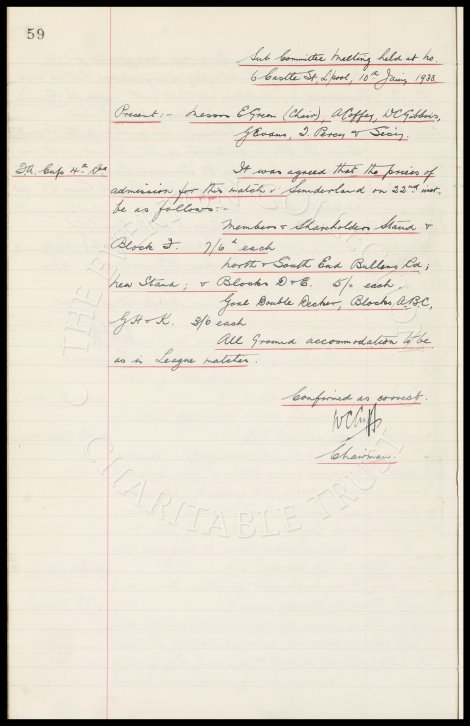 59
Sub Committee Meeting held at No.
6 Castle St, L'pool, 10th Jany, 1938.
Present:- Messrs E. Green (Chair), A. Coffey, W.C. Gibbins,
G. Evans, T. Percy & Secy.
F.A. Cup 4th Rd It was agreed that the prices of
admission for this match v Sunderland on 22nd inst.
be as follows:-
Members & Shareholders Stand &
Block F. 7/6d each
North & South End Bullens Rd;
New Stand; & Blocks D & E. 5/- each.
Goal Double Decker, Blocks A.B.C,
G H & K. 3/0 each
All Ground accommodation to be
as in League matches.
Confirmed as correct.
W C Cuff
Chairman.
THE EVERTON COLLECTION
CHARITABLE TRUST